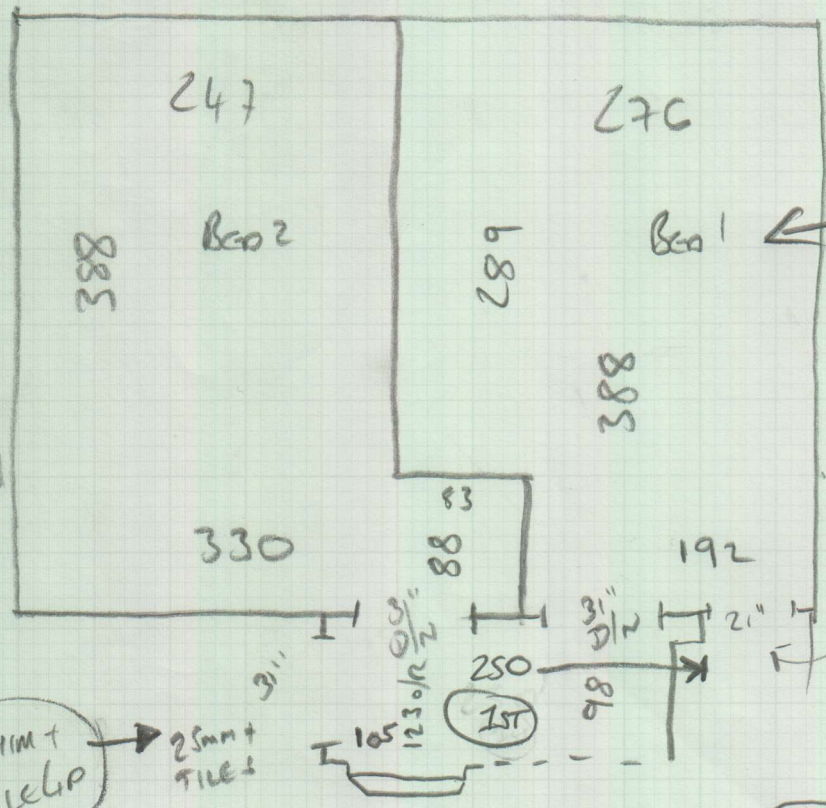 247
276
388
BED 2
289
BED 1
388
83
88
330
192
31"
D/N
21"
31"
250
98
1ST
105
123 O/R
25mm +
TILES